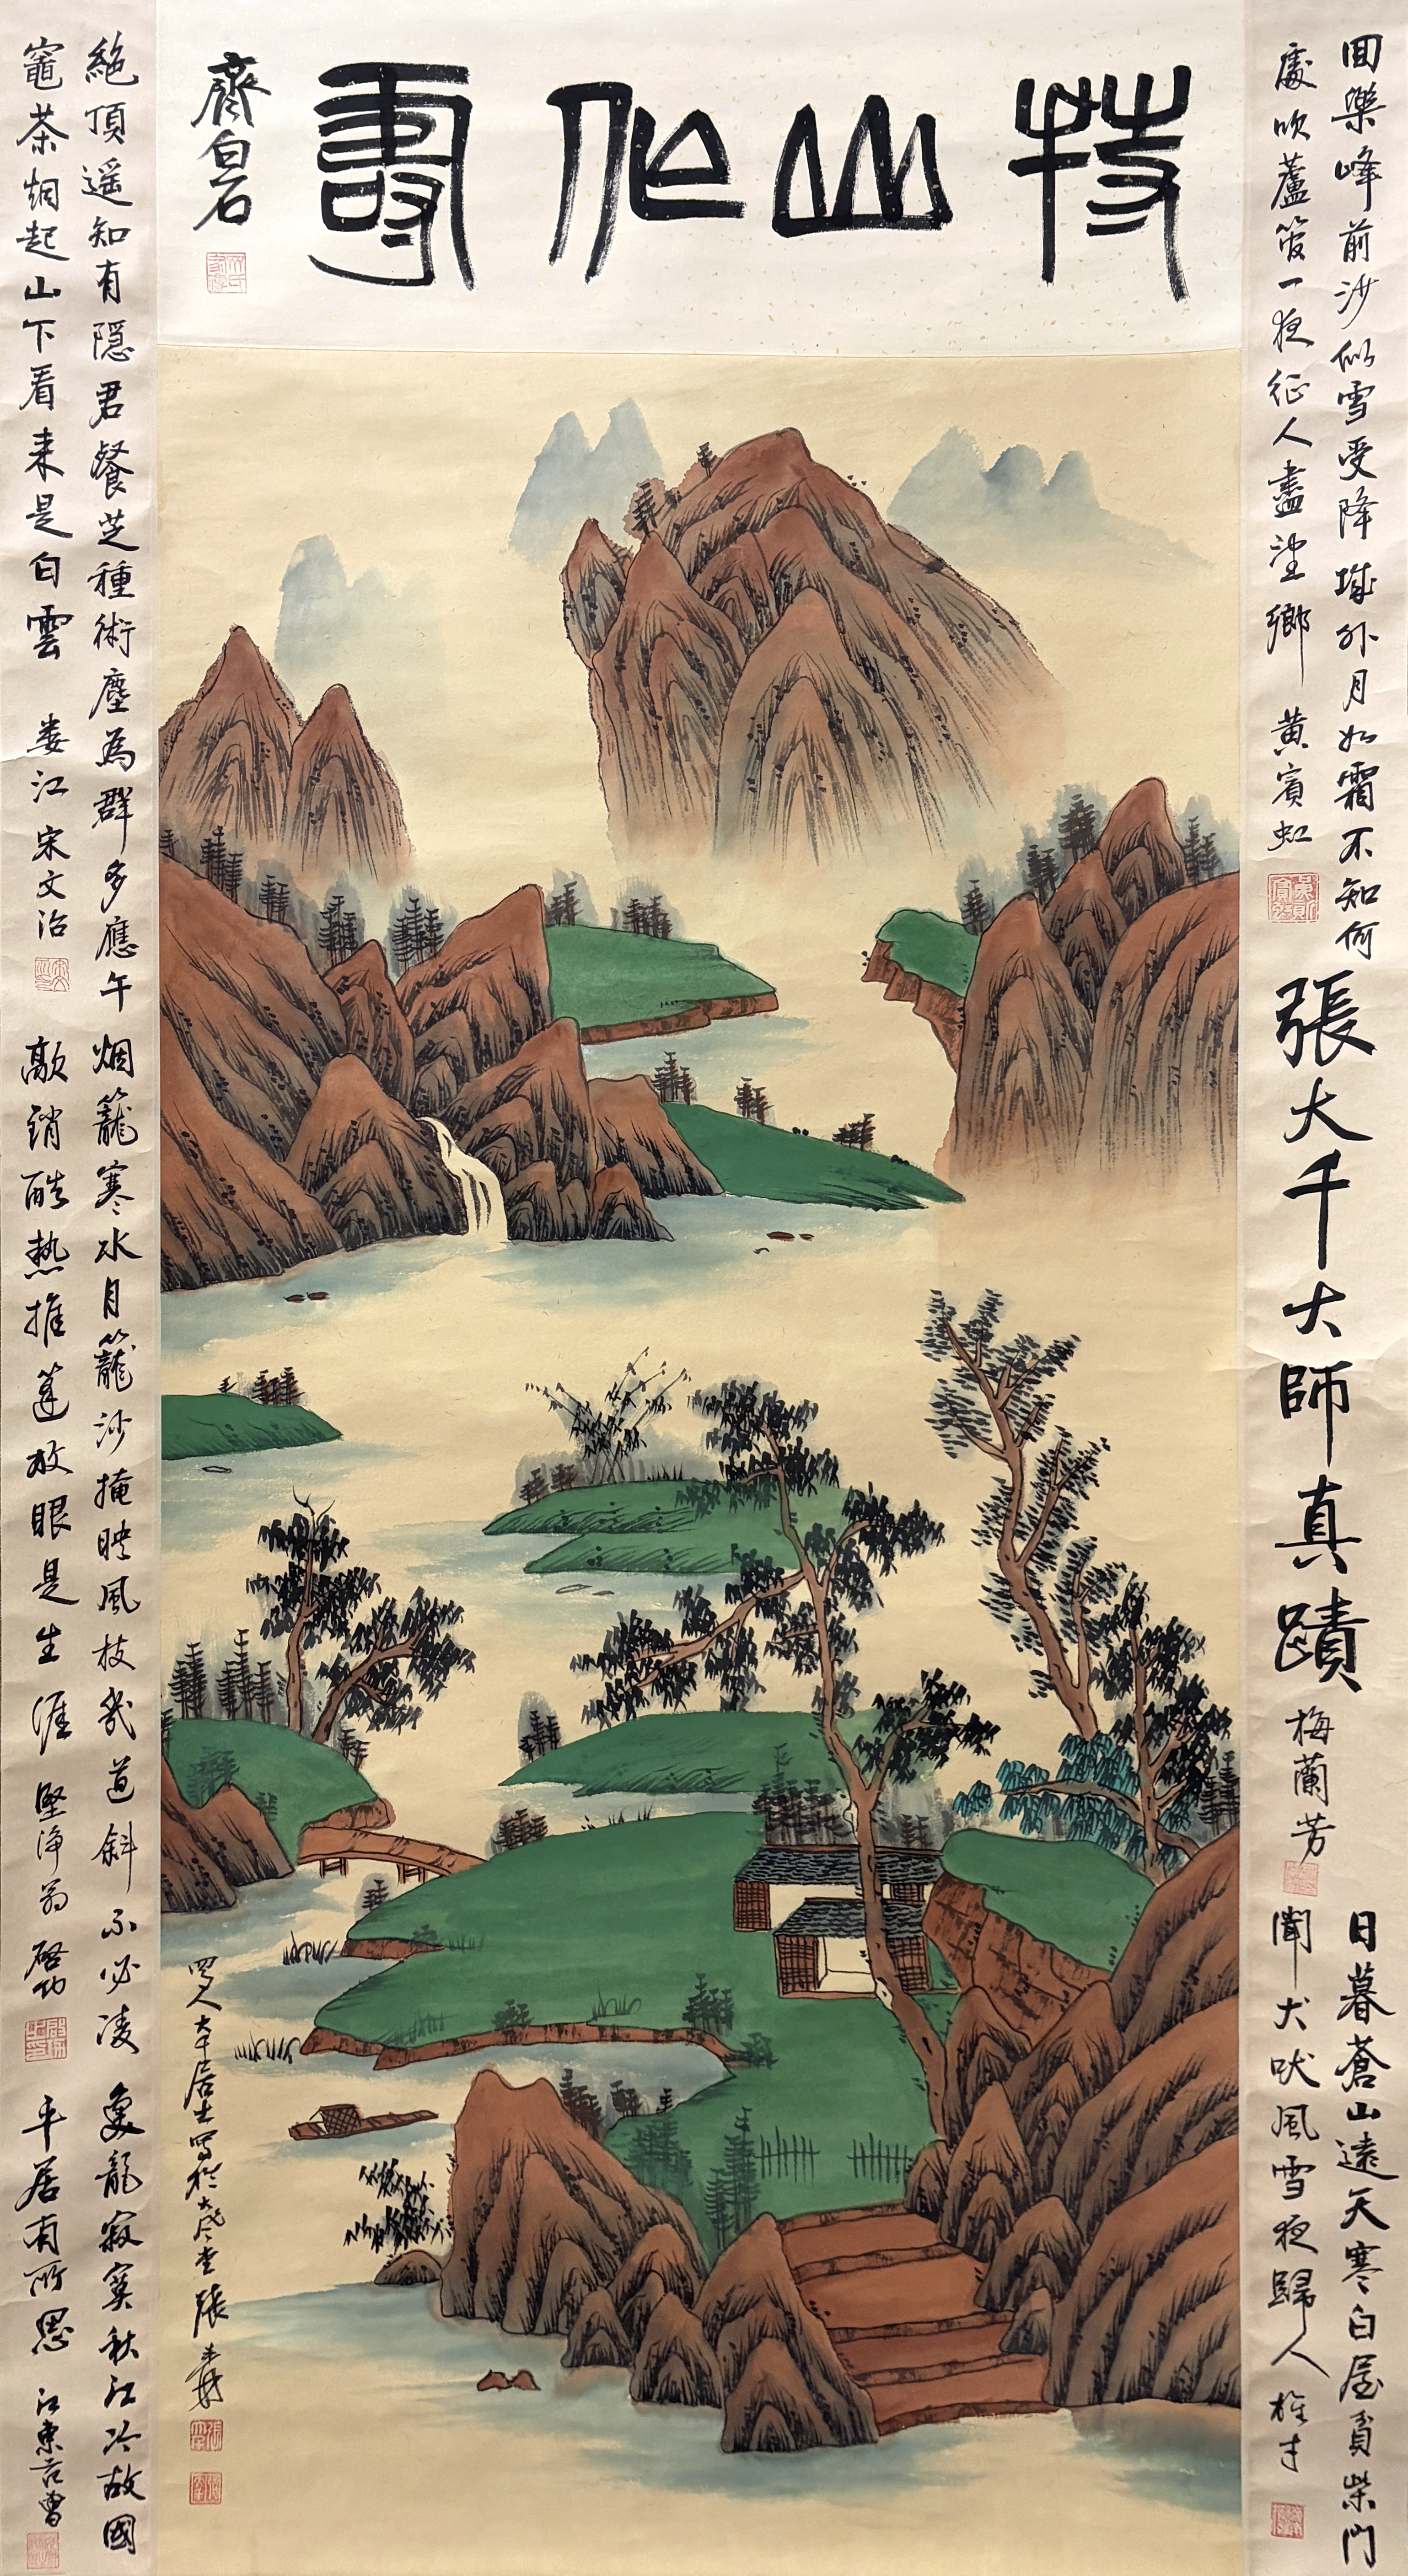 持山作壽
齊白石
回樂峰前沙似雪受降城外月如霜不知何
處吹蘆管一夜征人盡望鄉 黄賓虹
張大千大師真蹟
梅蘭芳
日暮蒼山遠天寒白屋貧柴門
聞犬吠風雪夜歸人
絕頂遥知有隱君餐芝種術塵為群多應午
竈茶烟起山下看来是白雲 娄江宋文治
烟籠寒水月籠沙掩映風枝幾道斜不必凌
敲銷酷热推篷放眼是生涯 堅净翁 启功
魚龍寂寞秋江冷故國
平居有所思 江東
蜀人大千居士寫於大風堂 張爰